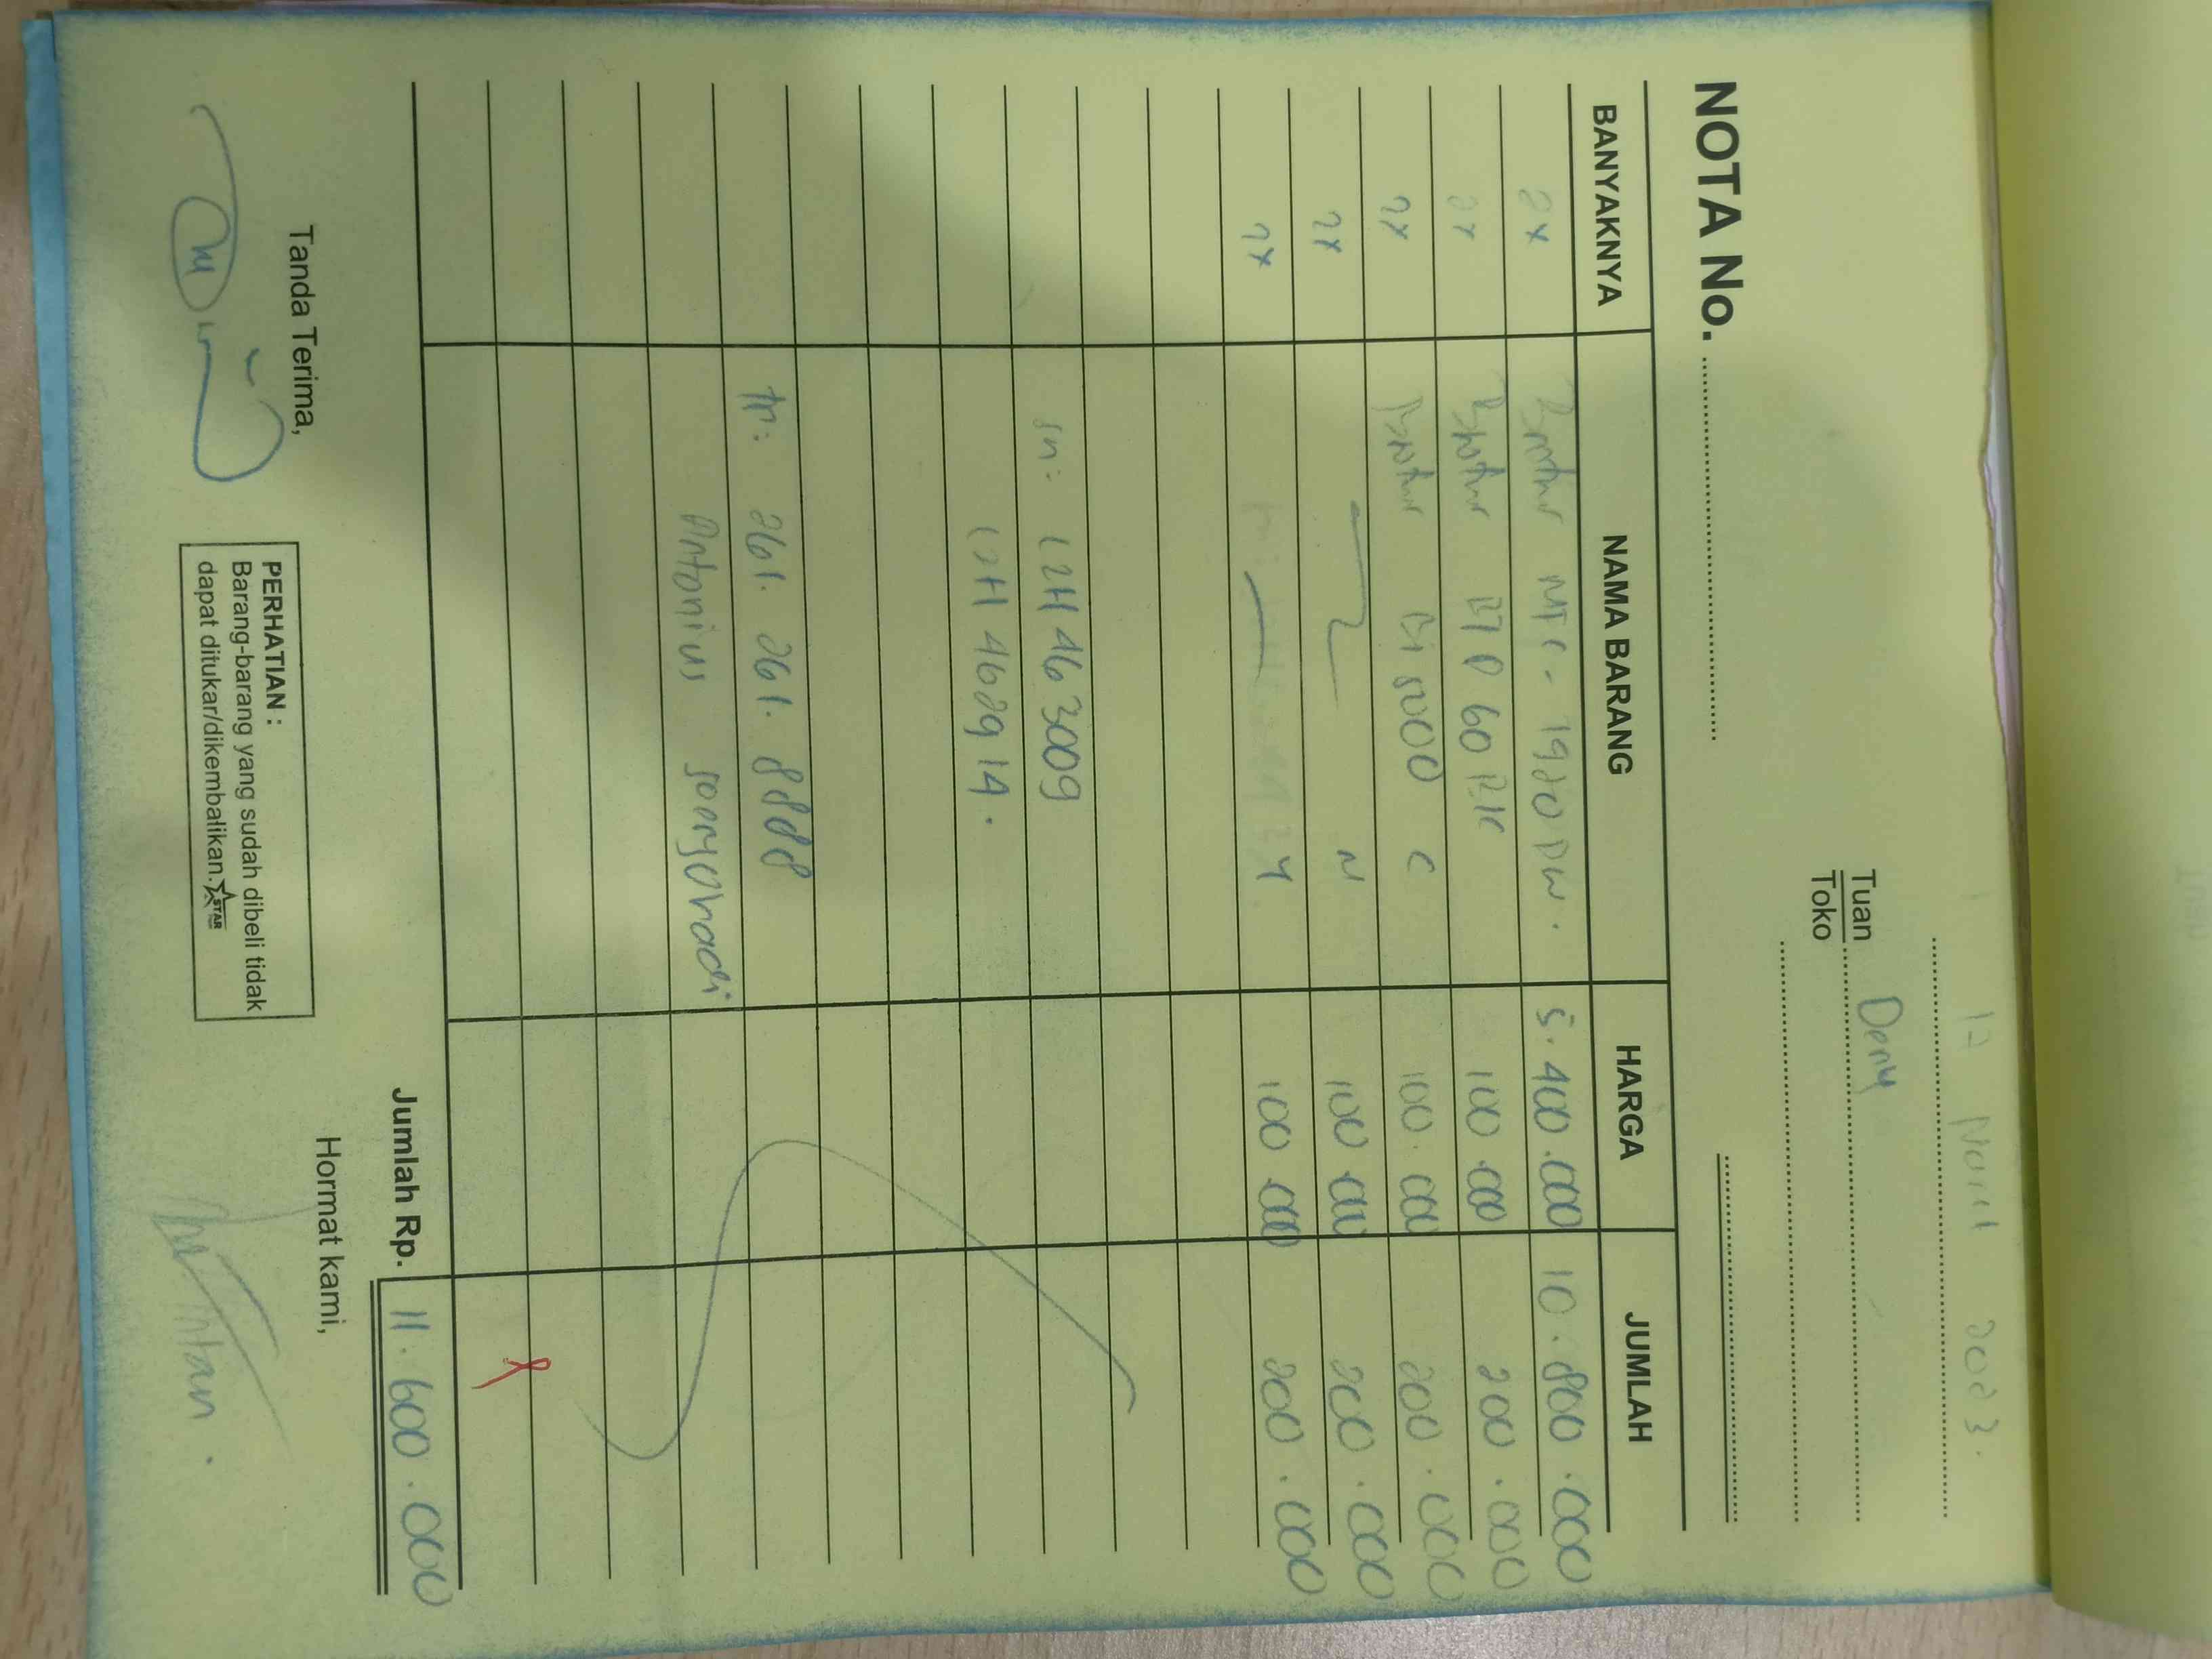 12 Maret 2023.
Tuan Deny
Toko
NOTA No.
BANYAKNYA NAMA BARANG HARGA JUMLAH
2x Brother MFC-T920DW. 5.400.000 10.800.000
2x Brother BTD 60 BK 100.000 200.000
2x Brother Bt 5000 C 100.000 200.000
2x M 100.000 200.000
2x Y 100.000 200.000
sn: L2H463009
L2H462914.
tr: 261. 261. 8888
Antonius soeryohadi
Jumlah Rp. 11.600.000
Tanda Terima,
Hormat kami,
PERHATIAN :
Barang-barang yang sudah dibeli tidak
dapat ditukar/dikembalikan.
STAR
Intan.